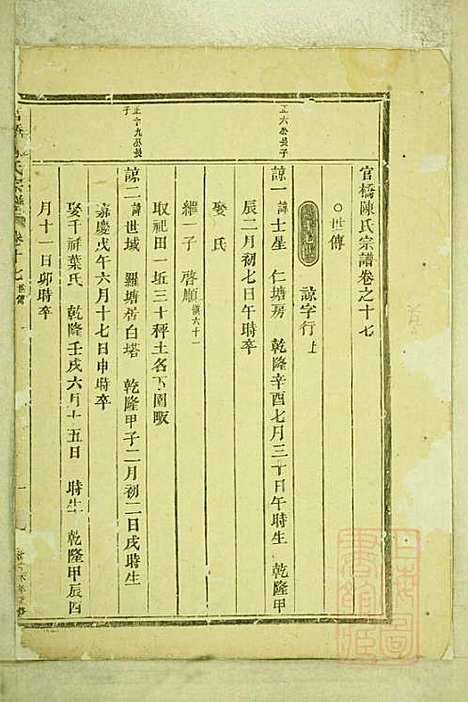 官橋陳氏宗譜卷之十七
○世傳
諒字行上
正六公長子
諒一 諱士星 仁塘房 乾隆辛酉七月三十日午時生 乾隆甲
辰二月初七日午時卒
娶 氏
繼一子 啓順 儀六十一
取祀田一坵三十秤土名下園畈
正十九公長子
諒二 諱世域 羅塘居白塔 乾隆甲子二月初二日戌時生
嘉慶戊午六月十七日申時卒
娶千祥葉氏 乾隆壬戌六月十五日 時生 乾隆甲辰四
月十一日卯時卒
氏宗譜 卷十七 世傳
一